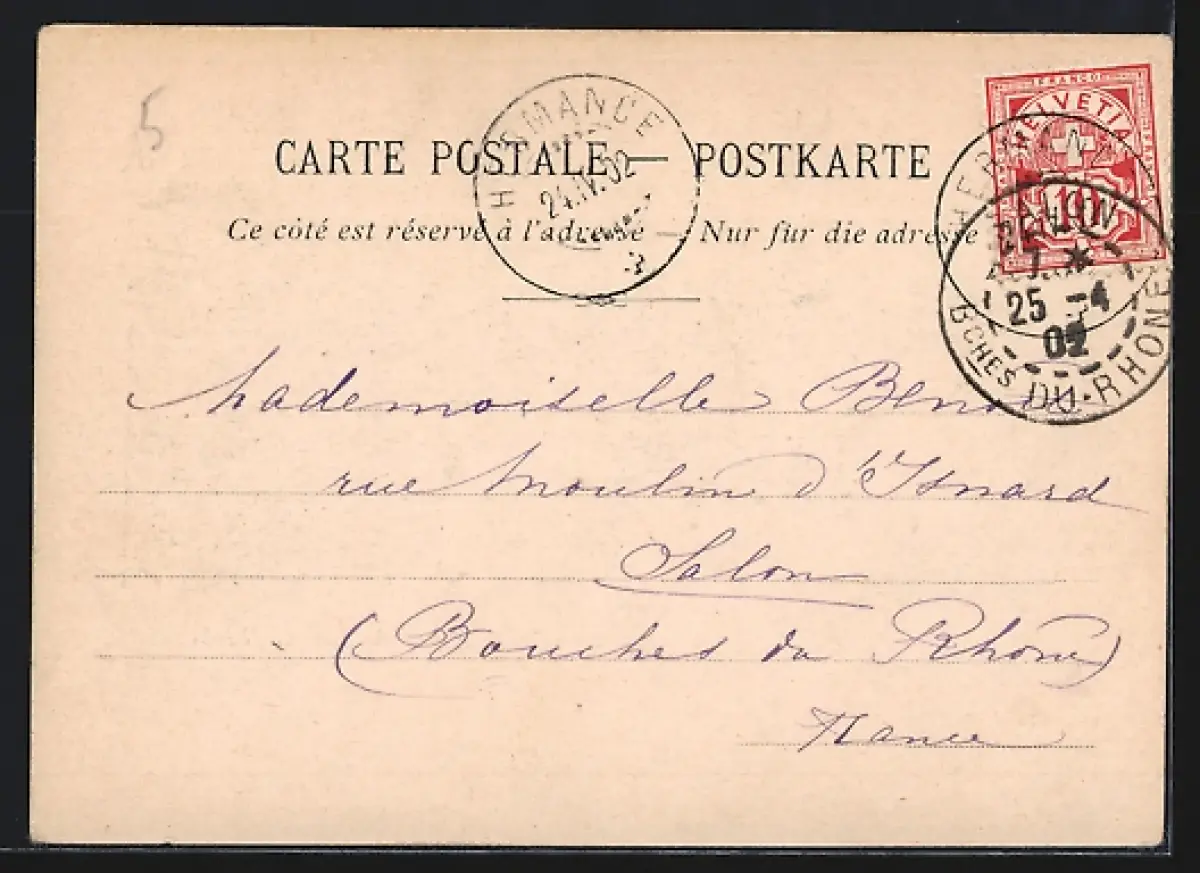 5
FRANCO
HELVETIA
10
HERMANCE
24.IV.02
CARTE POSTALE — POSTKARTE
Ce côté est réservé à l'adresse — Nur für die adresse
SALON
7 *
25 -4
02
BCHES DU-RHONE
Mademoiselle
rue Moulin d'Isnard
Salon
(Bouches du Rhône)
France